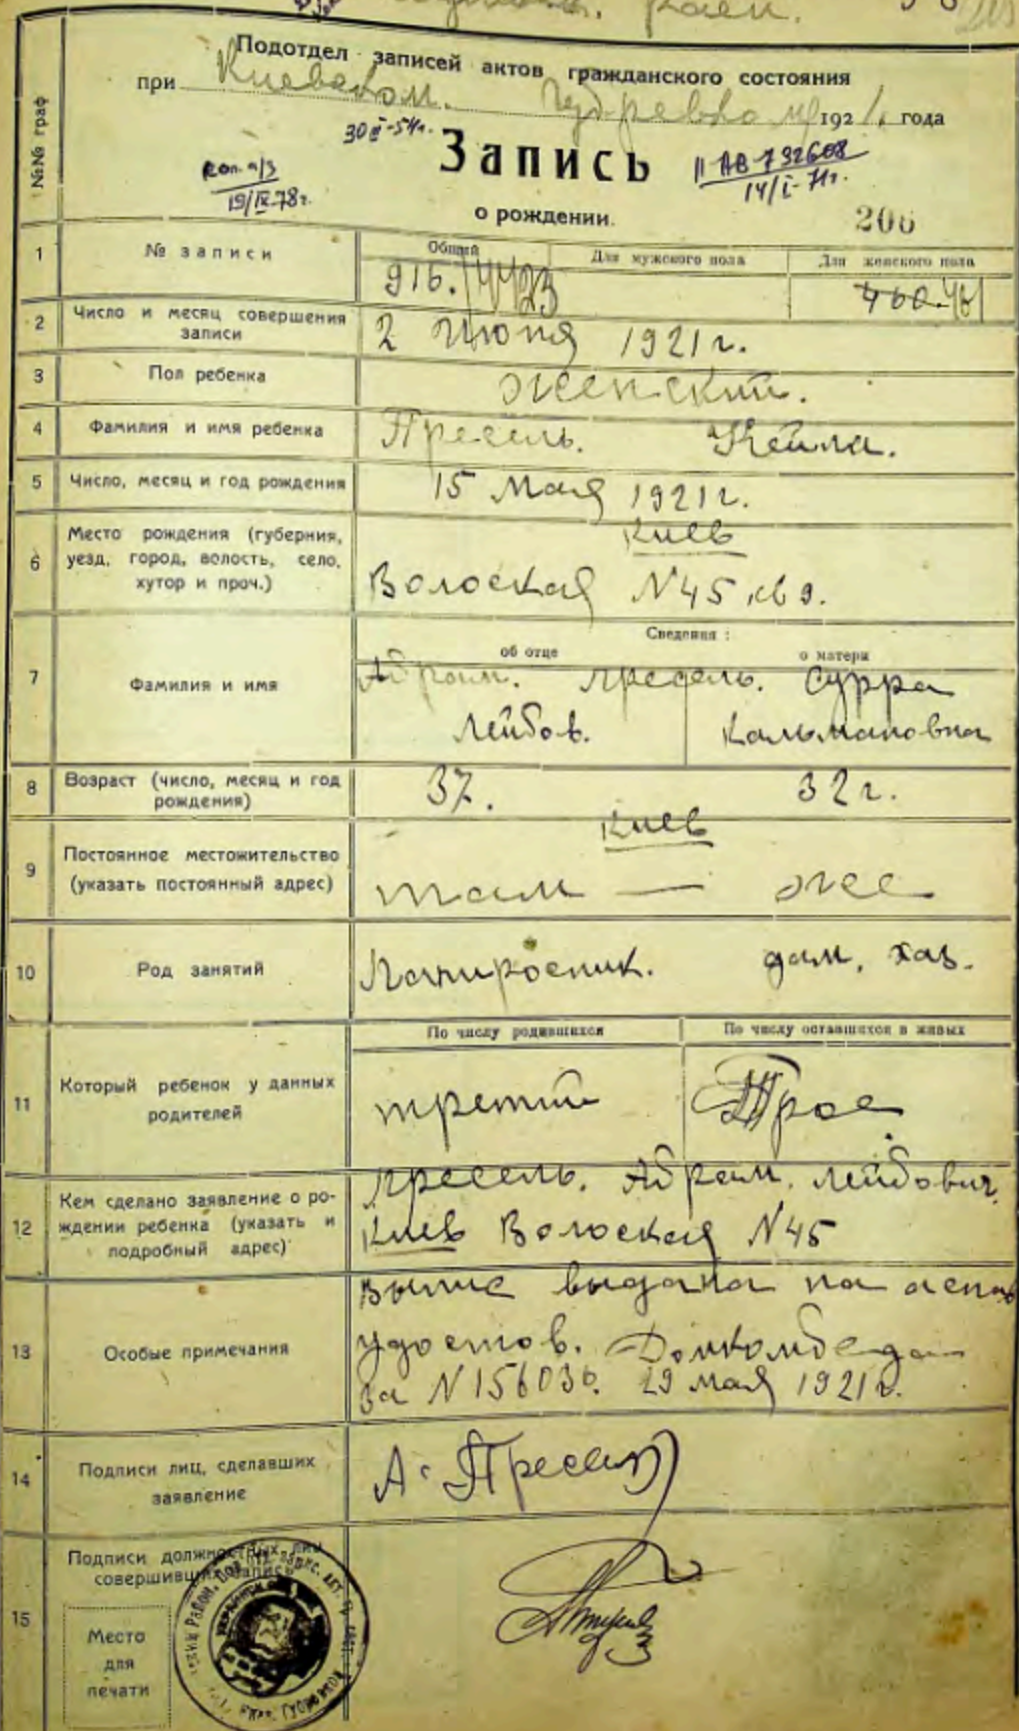 Подотдел записей актов гражданского состояния
при Киевском. Губревкоме 1921. года
30 -54г.
Запись
II АВ 732608
14/I-71г.
19/IX-78г.
о рождении.
206
№№ граф
1 № записи
Общий Для мужского пола Для женского пола
916./4423 460.
2 Число и месяц совершения записи
2 Июня 1921 г.
3 Пол ребенка
женский.
4 Фамилия и имя ребенка
Пресель. Кейла.
5 Число, месяц и год рождения
15 Мая 1921 г.
6 Место рождения (губерния,
уезд, город, волость, село,
хутор и проч.)
Киев
Волоская N45 кв 9.
Сведения:
об отце о матери
7 Фамилия и имя
Абрам. Пресель. Сурра
Лейбов. Кальмановна
8 Возраст (число, месяц и год
рождения)
37. 32 г.
Киев
9 Постоянное местожительство
(указать постоянный адрес)
там — же
10 Род занятий
Папиросник. дом. хоз.
По числу родившихся По числу оставшихся в живых
11 Который ребенок у данных
родителей
третий Трое
12 Кем сделано заявление о ро-
ждении ребенка (указать и
подробный адрес)
Пресель. Абрам. Лейбович.
Киев Волоская N45
13 Особые примечания
выпис выдана на основ
удостов. Домкомбеда
за N 156036. 29 мая 1921 г.
14 Подписи лиц, сделавших
заявление
А. Пресель
15 Подписи должностных лиц
совершивших запись
Место
для
печати